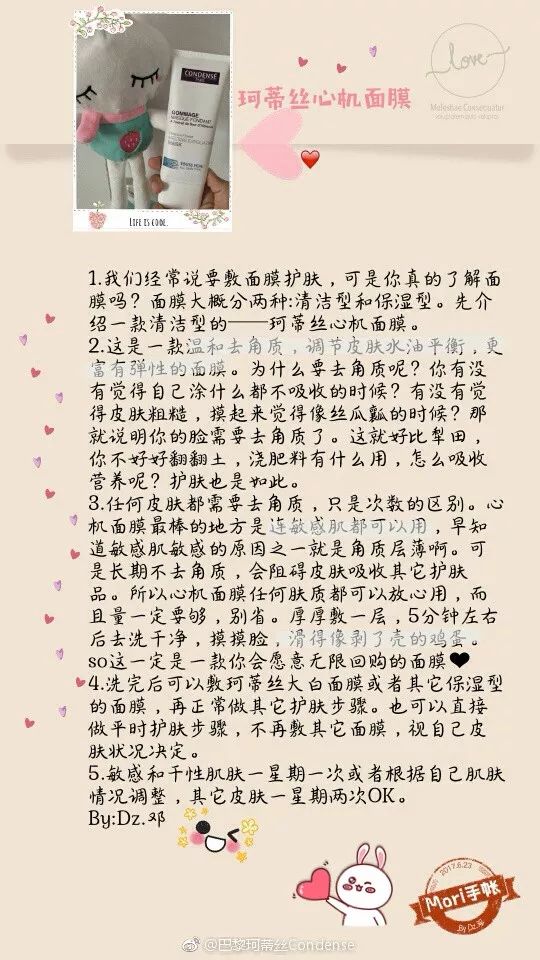 love
珂蒂丝心机面膜
CONDENSÉ
PARIS
GOMMAGE
MASQUE FONDANT
MASK
LIFE IS COOL.
1.我们经常说要敷面膜护肤，可是你真的了解面
膜吗？面膜大概分两种:清洁型和保湿型。先介
绍一款清洁型的——珂蒂丝心机面膜。
2.这是一款温和去角质，调节皮肤水油平衡，更
富有弹性的面膜。为什么要去角质呢？你有没
有觉得自己涂什么都不吸收的时候？有没有觉
得皮肤粗糙，摸起来觉得像丝瓜瓤的时候？那
就说明你的脸需要去角质了。这就好比犁田，
你不好好翻翻土，浇肥料有什么用，怎么吸收
营养呢？护肤也是如此。
3.任何皮肤都需要去角质，只是次数的区别。心
机面膜最棒的地方是连敏感肌都可以用，早知
道敏感肌敏感的原因之一就是角质层薄啊。可
是长期不去角质，会阻碍皮肤吸收其它护肤
品。所以心机面膜任何肤质都可以放心用，而
且量一定要够，别省。厚厚敷一层，5分钟左右
后去洗干净，摸摸脸，滑得像剥了壳的鸡蛋。
so这一定是一款你会愿意无限回购的面膜
4.洗完后可以敷珂蒂丝大白面膜或者其它保湿型
的面膜，再正常做其它护肤步骤。也可以直接
做平时护肤步骤，不再敷其它面膜，视自己皮
肤状况决定。
5.敏感和干性肌肤一星期一次或者根据自己肌肤
情况调整，其它皮肤一星期两次OK。
By:Dz.邓
2017.6.23
Mori手帐
By Dz.邓
@巴黎珂蒂丝Condense